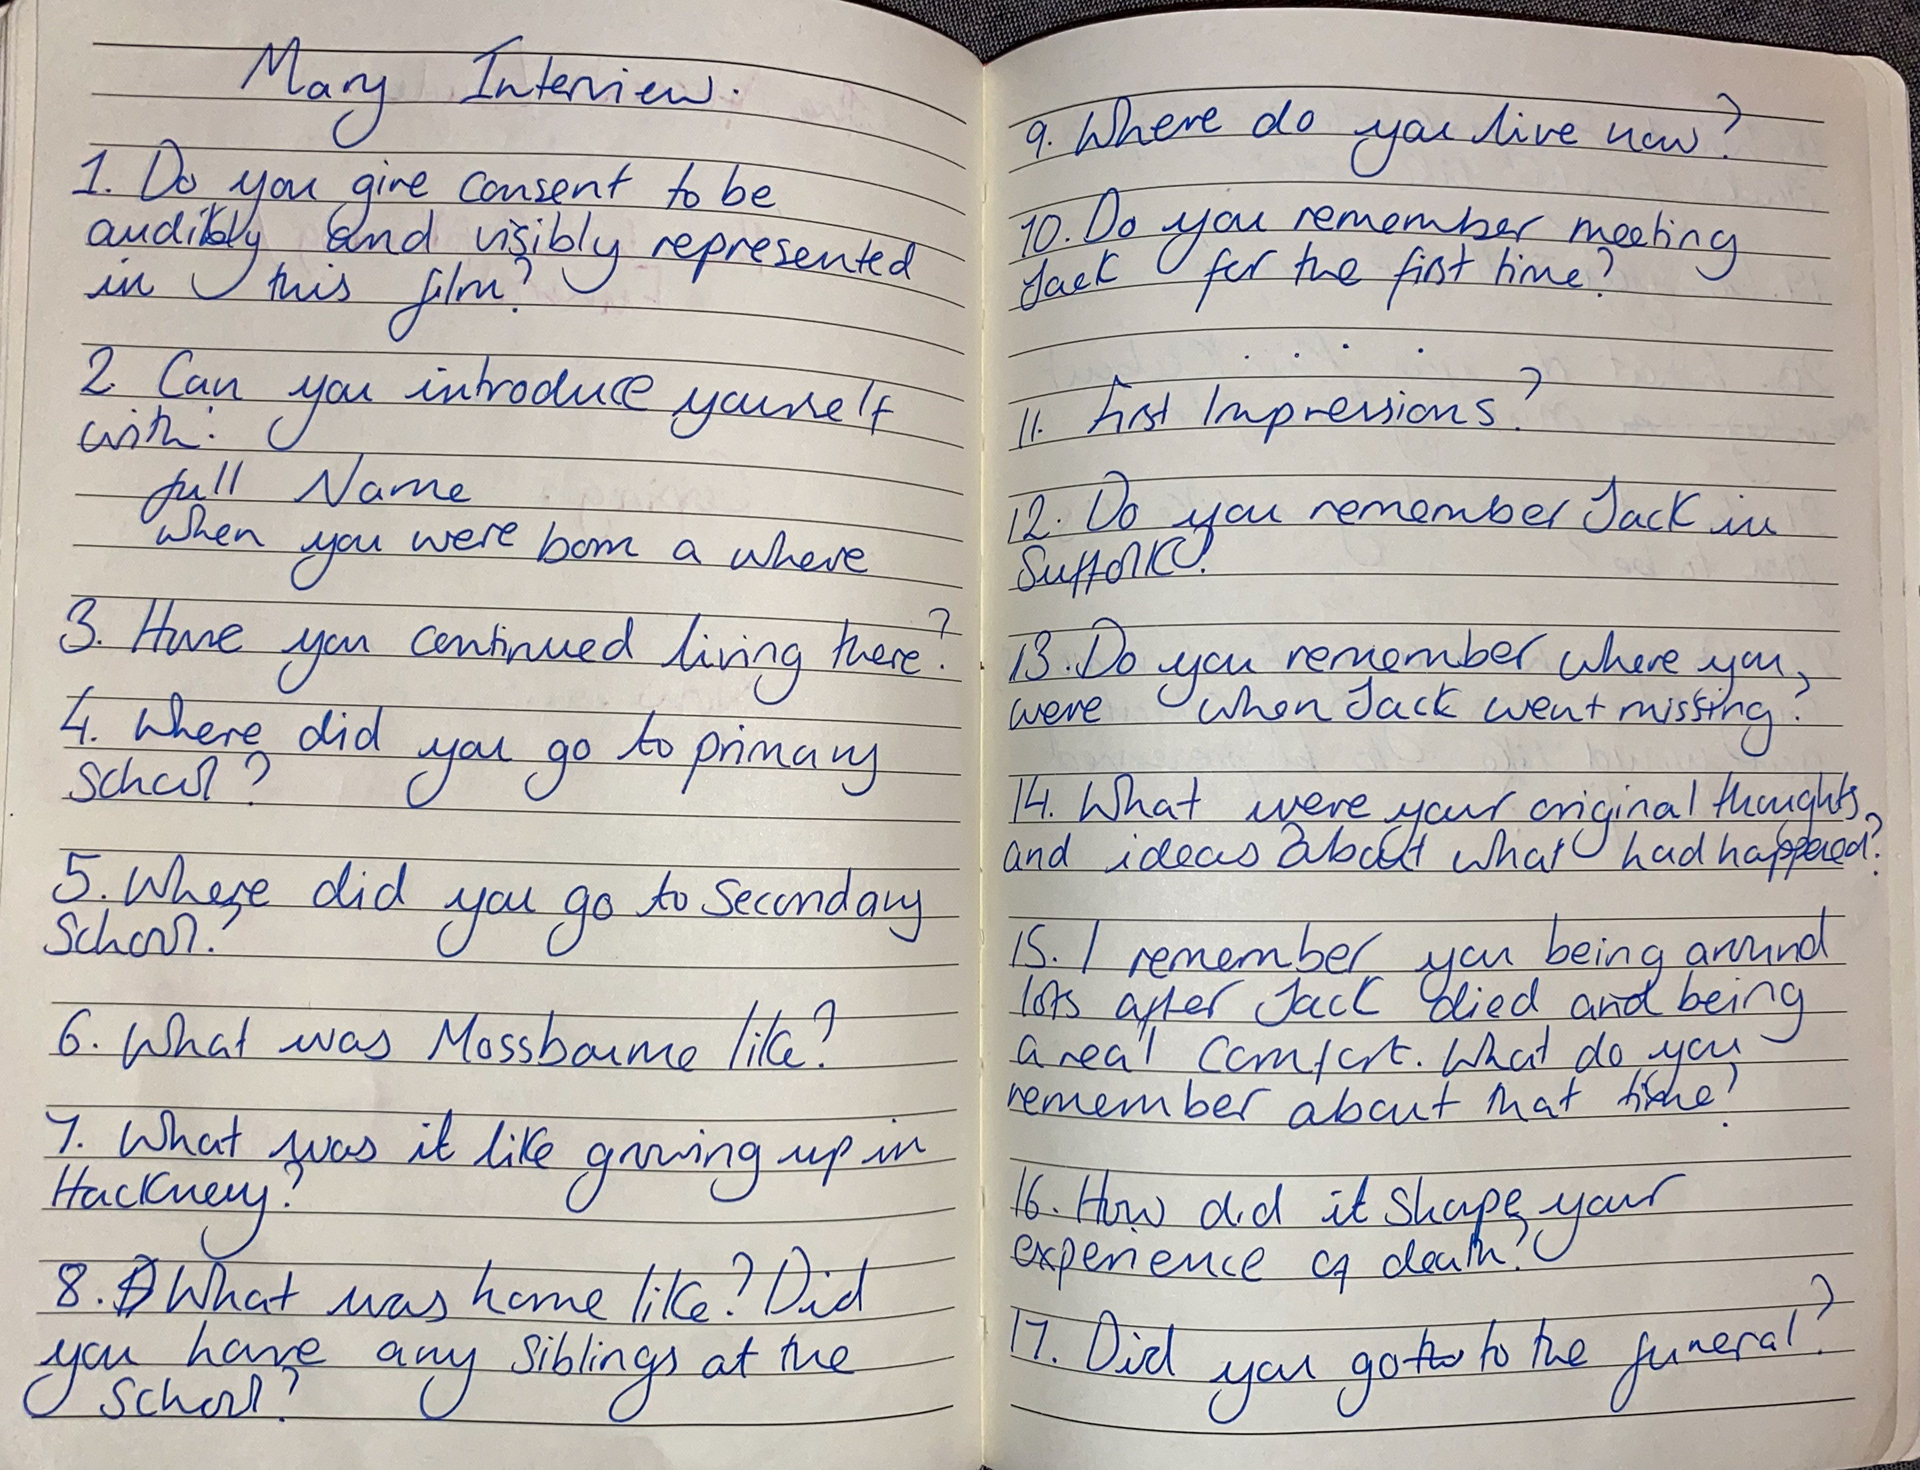 Mary Interview.
1. Do you give consent to be
audibly and visibly represented
in this film?
2. Can you introduce yourself
with:
full Name
when you were born a where
3. Have you continued living there?
4. Where did you go to primary
school?
5. Where did you go to Secondary
School?
6. What was Mossbourne like?
7. What was it like growing up in
Hackney?
8. What was home like? Did
you have any siblings at the
School?
9. Where do you live now?
10. Do you remember meeting
Jack for the first time?
11. First Impressions?
12. Do you remember Jack in
Suffolk?
13. Do you remember where you
were when Jack went missing?
14. What were your original thoughts
and ideas about what had happened?
15. I remember you being around
lots after Jack died and being
a real comfort. What do you
remember about that time?
16. How did it shape your
experience of death?
17. Did you go to the funeral?